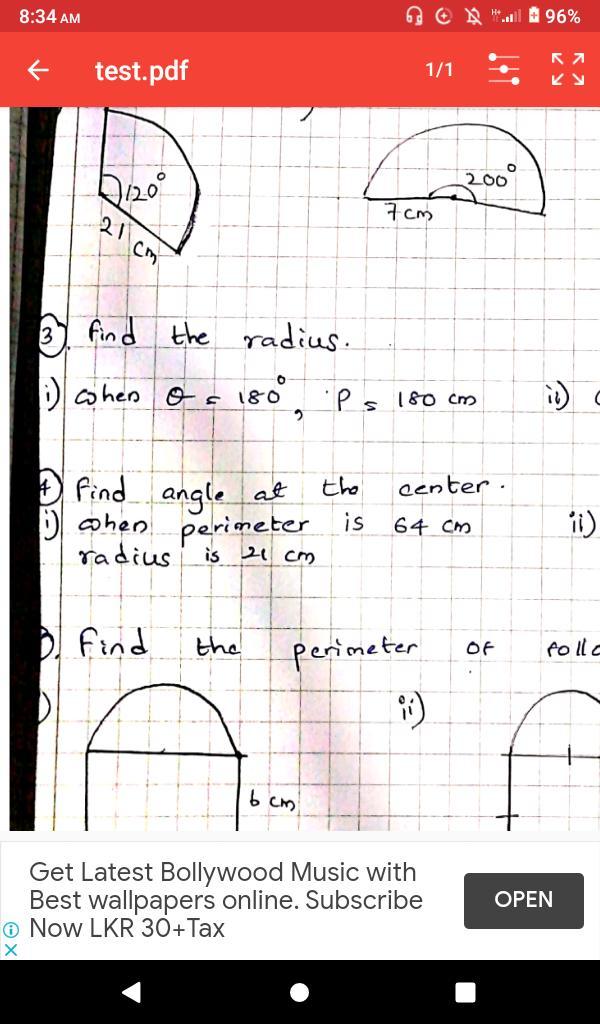 8:34 AM
96%
test.pdf
1/1
120°
21 cm
200°
7 cm
3. find the radius.
i) when θ = 180°, P = 180 cm ii)
4 find angle at the center.
i) when perimeter is 64 cm ii)
radius is 21 cm
. find the perimeter of follo
) ii)
6 cm
Get Latest Bollywood Music with
Best wallpapers online. Subscribe
Now LKR 30+Tax
OPEN